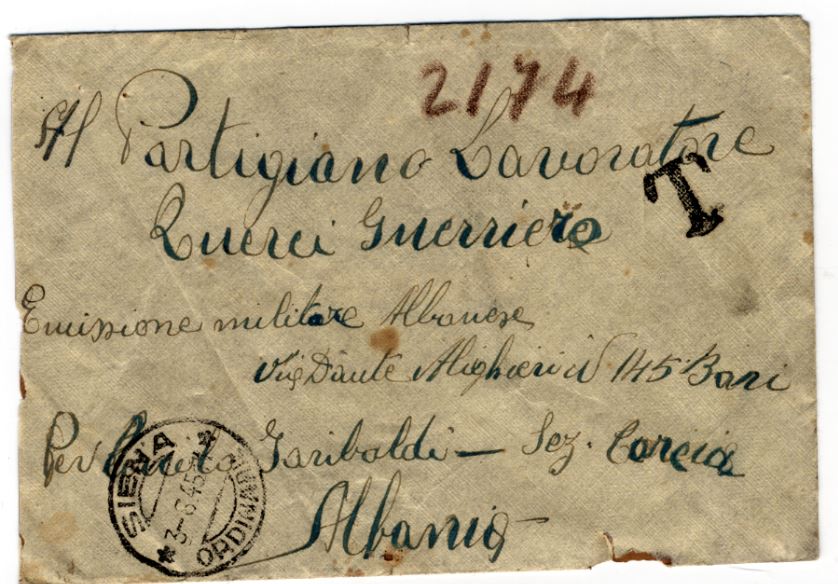 2174
Partigiano Lavoratore
T
Querci Guerriero
Emissione militare Albanese
via Dante Alighieri N 145 Bari
Per Garibaldi — Sez. Corcia
Albania
SIENA
3-6 45
ORDINARIE